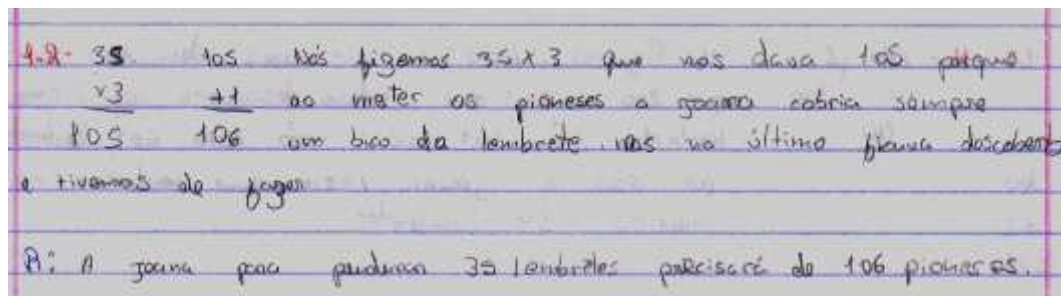 1.2- 35 105 Nós fizemos 35 x 3 que nos dava 105 porque
x3 +1 ao meter os pioneses a Joana cobria sempre
105 106 um bico da lembrete mas no último ficava descobert
e tivemos de fazer
R: A Joana para pendurar 35 lembretes precisará de 106 pioneses.